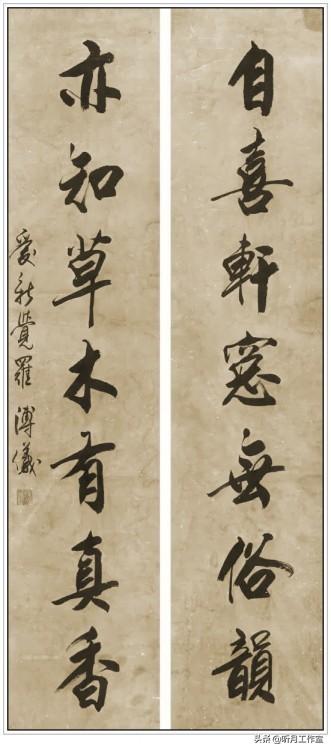 自喜軒窓無俗韻
亦知草木有真香
愛新覺羅 溥儀
头条 @听月工作室